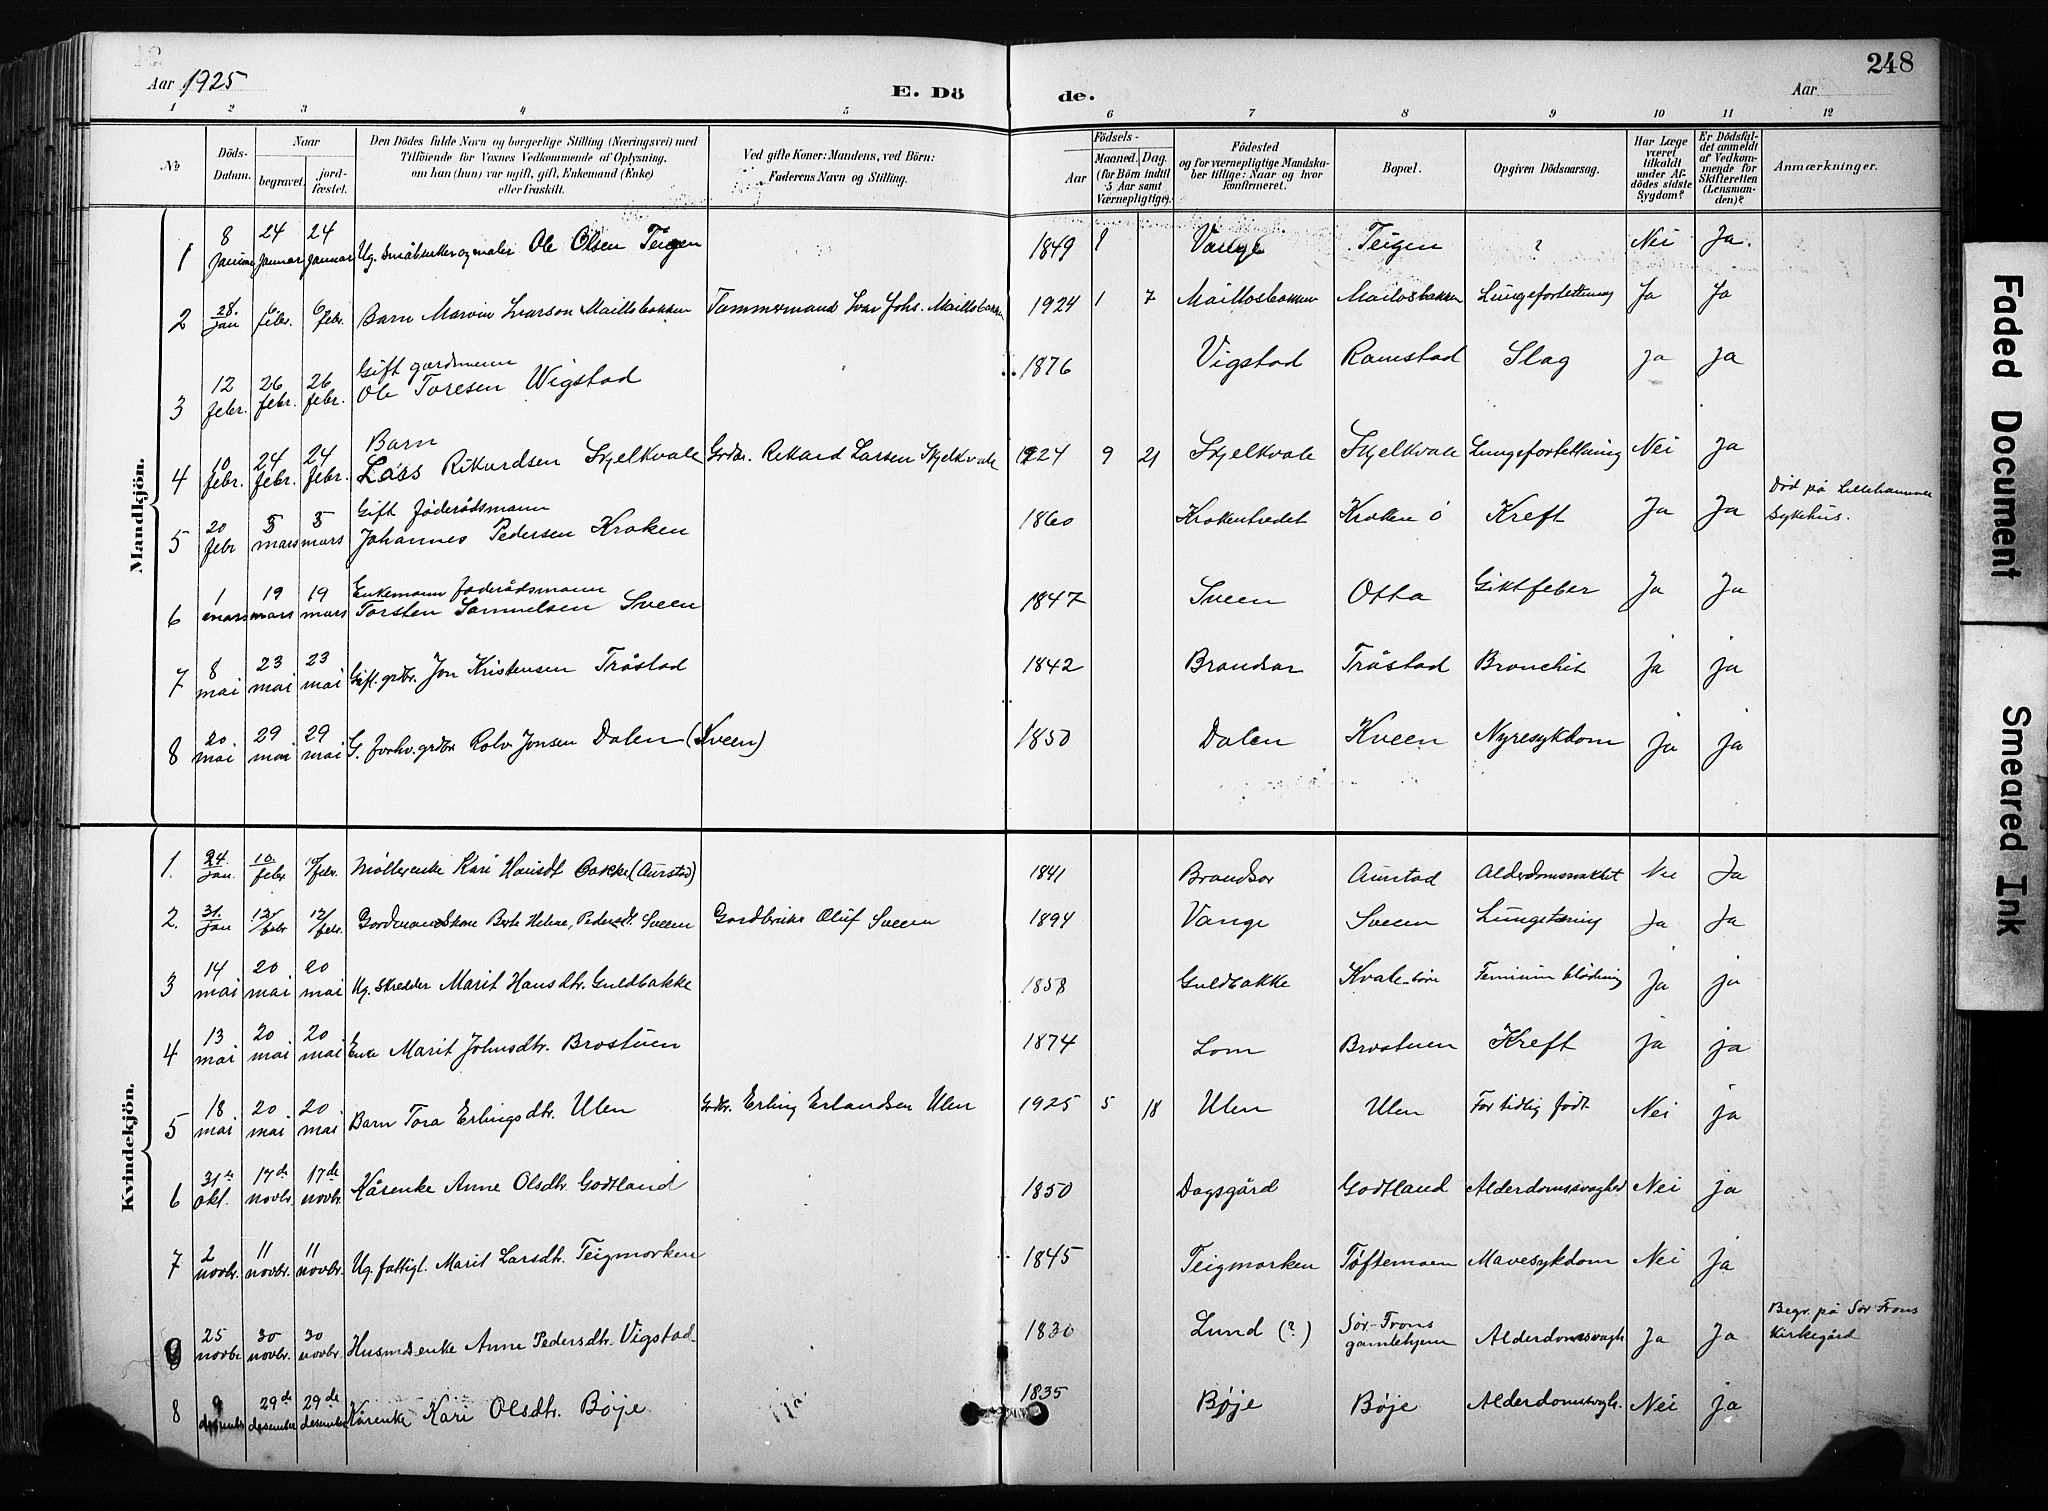 248
Aar 1925
E. Dö
de.
Aar
1 2 3 4 5 6 7 8 9 10 11 12
No
Döds-Datum.
Naar
begravet.
jord-fæstet.
Den Dödes fulde Navn og borgerlige Stilling (Næringsvei) med
Tilföiende for Voxnes Vedkommende af Oplysning,
om han (hun) var ugift, gift, Enkemand (Enke)
eller fraskilt.
Ved gifte Koner: Mandens, ved Börn:
Faderens Navn og Stilling.
Födsels-
Aar
Maaned. Dag.
(for Börn indtil
5 Aar samt
Værnepligtige).
Födested
og for værnepligtige Mandska-
ber tillige: Naar og hvor
konfirmeret.
Bopæl.
Opgiven Dödsaarsag.
Har Læge
været
tilkaldt
under Af-
dödes sidste
Sygdom?
Er Dödsfal-
det anmeldt
af Vedkom-
mende for
Skifteretten
(Lensman-
den)?
Anmærkninger.
Mandkjön.
1 8 januar 24 januar 24 januar Ug. Småbruker og maler Ole Olsen Teigen 1849 Vange Teigen ? Nei Ja.
2 28. jan 6. febr. 6 febr. Barn Marvin Ivarson Maillosbakken Tømmermand Ivar Johs. Maillosbakken 1924 1 7 Maillosbakken Mailosbakken Lungefortettning Ja Ja
3 12 febr. 26 febr. 26 febr. Gift gardmann
Ole Toresen Wigstad 1876 Vigstad Ramstad Slag ja ja
4 10 febr. 24 febr. 24 febr. Barn
Lars Rikardsen Skjelkvale Grdbr. Rikard Larsen Skjelkvale 1924 9 21 Skjelkvale Skjelkvale Lungefortettning Nei Ja
5 20 febr 3 mars 3 mars Gift føderådsmann
Johannes Pedersen Kroken 1860 Kroken Kreft Ja Ja Død på Lillehammer
sykehus.
6 1 mars 19 mars 19 mars Enkemann føderådsmann
Torsten Samuelsen Sveen 1847 Sveen Otta Giktfeber Ja Ja
7 8 mai 23 mai 23 mai Gift. grdbr. Jon Kristensen Tråstad 1842 Brandvor Tråstad Bronchit ja ja
8 20. mai 29 mai 29 mai G. forhv. grdbr Rolv Jonsen Dalen (Kveen) 1850 Dalen Kveen Nyresykdom ja ja
Kvindekjön.
1. 24. jan. 10. febr 10/febr. Møllerenke Kari Hansdt Bakke (Aurstad) 1841 Brandvor Aurstad Alderdomssvakhet Nei Ja
2. 31. jan 12/febr 12/febr. Gordmandskone Berte Helene, Pedersdt. Sveen Gardbruker Oluf Sveen 1894 Vange Sveen Lungetæring Ja Ja
3 14 mai 20 mai 20 mai Ug. skredder Marit Hansdtr. Guldbakke 1858 Guldbakke Kvale Feminin blødning Ja ja
4 13 mai 20 mai 20 mai Enke Marit Johnsdtr. Brostuen 1874 Lom Brostuen Kreft ja ja
5 18 mai. 20 mai. 20 mai Barn Tora Erlingsdtr. Ulen Grdbr. Erling Erlandsen Ulen 1925 5 18 Ulen Ulen For tidlig født. Nei ja
6 31te okt. 17de novbr. 17de novbr. Kårenke Anne Olsdtr. Godtland 1850 Dagsgård Godtland Alderdomssvaghed Nei ja
7 2 novbr. 11 novbr. 11 novbr. Ug. fattigl. Marit Larsdtr. Teigmorken 1845 Teigmorken Tøftemoen Mavesykdom Nei ja
9 25 novbr 30 novbr. 30 novbr. Husmdsenke Anne Pedersdtr. Vigstad 1830 Lund (?) Sør-Frons
gamlehjem Alderdomssvagh. Ja Ja Begr. på Sør Frons
kirkegård
8 9 desember 29de desember 29de desember Kårenke Kari Olsdtr. Bøje 1835 Bøje Bøje Alderdomssvagh. Nei ja
Faded Document
Smeared Ink